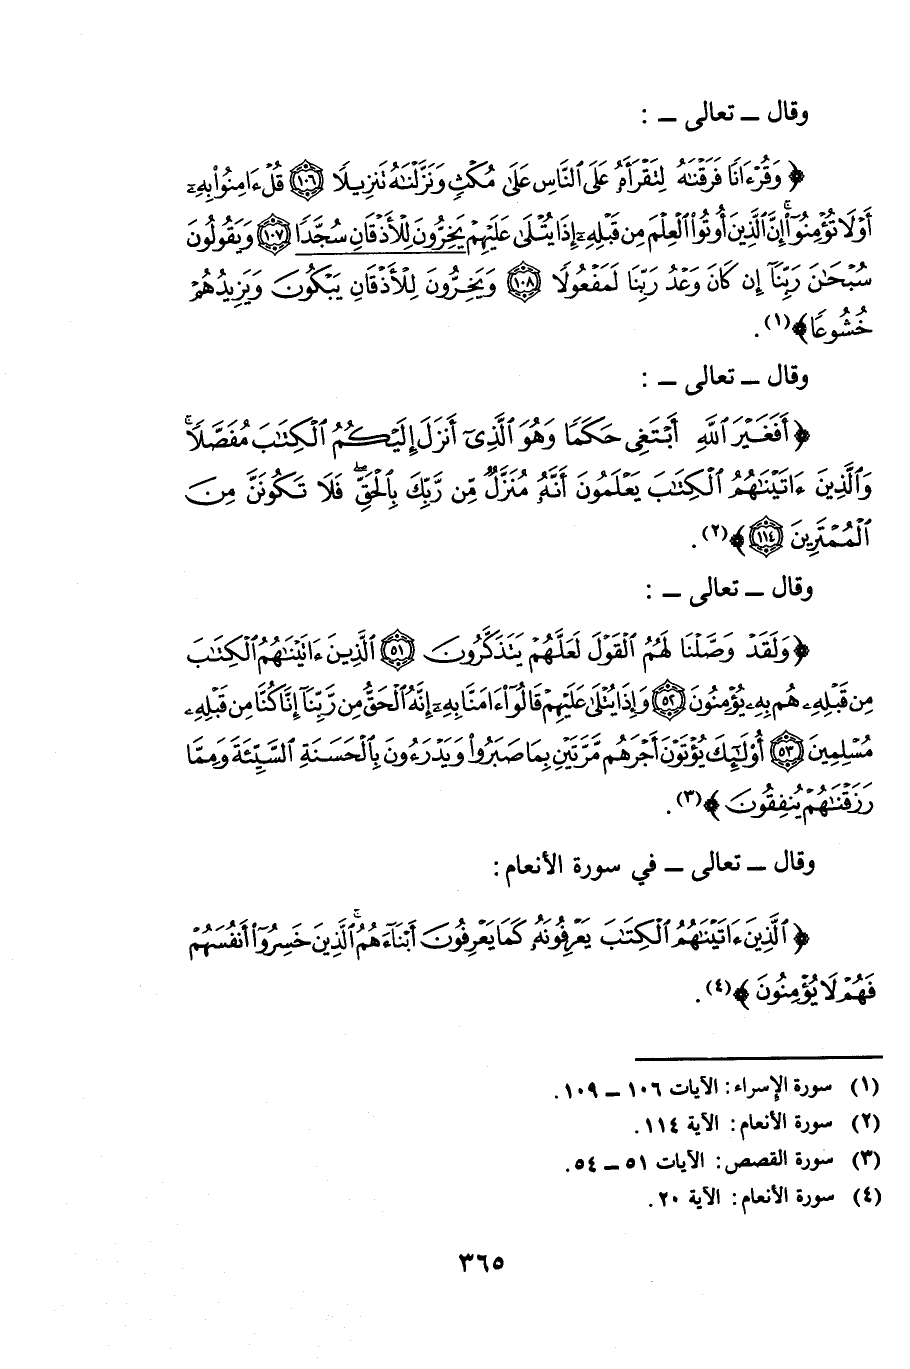 وقال ــ تعالى ــ :
﴿ وَقُرْءَانًا فَرَقْنَٰهُ لِتَقْرَأَهُۥ عَلَى ٱلنَّاسِ عَلَىٰ مُكْثٍ وَنَزَّلْنَٰهُ تَنزِيلًا ۝١٠٦ قُلْ ءَامِنُوا۟ بِهِۦٓ
أَوْ لَا تُؤْمِنُوٓا۟ ۚ إِنَّ ٱلَّذِينَ أُوتُوا۟ ٱلْعِلْمَ مِن قَبْلِهِۦٓ إِذَا يُتْلَىٰ عَلَيْهِمْ يَخِرُّونَ لِلْأَذْقَانِ سُجَّدًا ۝١٠٧ وَيَقُولُونَ
سُبْحَٰنَ رَبِّنَآ إِن كَانَ وَعْدُ رَبِّنَا لَمَفْعُولًا ۝١٠٨ وَيَخِرُّونَ لِلْأَذْقَانِ يَبْكُونَ وَيَزِيدُهُمْ
خُشُوعًا﴾(١) .
وقال ــ تعالى ــ :
﴿ أَفَغَيْرَ ٱللَّهِ أَبْتَغِى حَكَمًا وَهُوَ ٱلَّذِىٓ أَنزَلَ إِلَيْكُمُ ٱلْكِتَٰبَ مُفَصَّلًا ۚ
وَٱلَّذِينَ ءَاتَيْنَٰهُمُ ٱلْكِتَٰبَ يَعْلَمُونَ أَنَّهُۥ مُنَزَّلٌ مِّن رَّبِّكَ بِٱلْحَقِّ ۖ فَلَا تَكُونَنَّ مِنَ
ٱلْمُمْتَرِينَ ۝١١٤ ﴾(٢) .
وقال ــ تعالى ــ :
﴿ وَلَقَدْ وَصَّلْنَا لَهُمُ ٱلْقَوْلَ لَعَلَّهُمْ يَتَذَكَّرُونَ ۝٥١ ٱلَّذِينَ ءَاتَيْنَٰهُمُ ٱلْكِتَٰبَ
مِن قَبْلِهِۦ هُم بِهِۦ يُؤْمِنُونَ ۝٥٢ وَإِذَا يُتْلَىٰ عَلَيْهِمْ قَالُوٓا۟ ءَامَنَّا بِهِۦٓ إِنَّهُ ٱلْحَقُّ مِن رَّبِّنَآ إِنَّا كُنَّا مِن قَبْلِهِۦ
مُسْلِمِينَ ۝٥٣ أُو۟لَٰٓئِكَ يُؤْتَوْنَ أَجْرَهُم مَّرَّتَيْنِ بِمَا صَبَرُوا۟ وَيَدْرَءُونَ بِٱلْحَسَنَةِ ٱلسَّيِّئَةَ وَمِمَّا
رَزَقْنَٰهُمْ يُنفِقُونَ ﴾(٣) .
وقال ــ تعالى ــ في سورة الأنعام :
﴿ ٱلَّذِينَ ءَاتَيْنَٰهُمُ ٱلْكِتَٰبَ يَعْرِفُونَهُۥ كَمَا يَعْرِفُونَ أَبْنَآءَهُمُ ۘ ٱلَّذِينَ خَسِرُوٓا۟ أَنفُسَهُمْ
فَهُمْ لَا يُؤْمِنُونَ ﴾(٤) .
(١) سورة الإسراء : الآيات ١٠٦ ــ ١٠٩ .
(٢) سورة الأنعام : الآية ١١٤ .
(٣) سورة القصص : الآيات ٥١ ــ ٥٤ .
(٤) سورة الأنعام : الآية ٢٠ .
٣٦٥